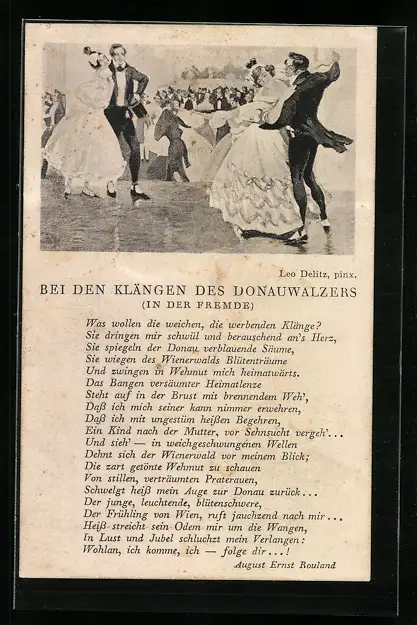 Leo Delitz, pinx.
BEI DEN KLÄNGEN DES DONAUWALZERS
(IN DER FREMDE)
Was wollen die weichen, die werbenden Klänge?
Sie dringen mir schwül und berauschend an's Herz,
Sie spiegeln der Donau verblauende Säume,
Sie wiegen des Wienerwalds Blütenträume
Und zwingen in Wehmut mich heimatwärts.
Das Bangen versäumter Heimatlenze
Steht auf in der Brust mit brennendem Weh',
Daß ich mich seiner kann nimmer erwehren,
Daß ich mit ungestüm heißen Begehren,
Ein Kind nach der Mutter, vor Sehnsucht vergeh'...
Und sieh' — in weichgeschwungenen Wellen
Dehnt sich der Wienerwald vor meinem Blick;
Die zart getönte Wehmut zu schauen
Von stillen, verträumten Praterauen,
Schwelgt heiß mein Auge zur Donau zurück...
Der junge, leuchtende, blütenschwere,
Der Frühling von Wien, ruft jauchzend nach mir...
Heiß streicht sein Odem mir um die Wangen,
In Lust und Jubel schluchzt mein Verlangen:
Wohlan, ich komme, ich — folge dir...!
August Ernst Rouland